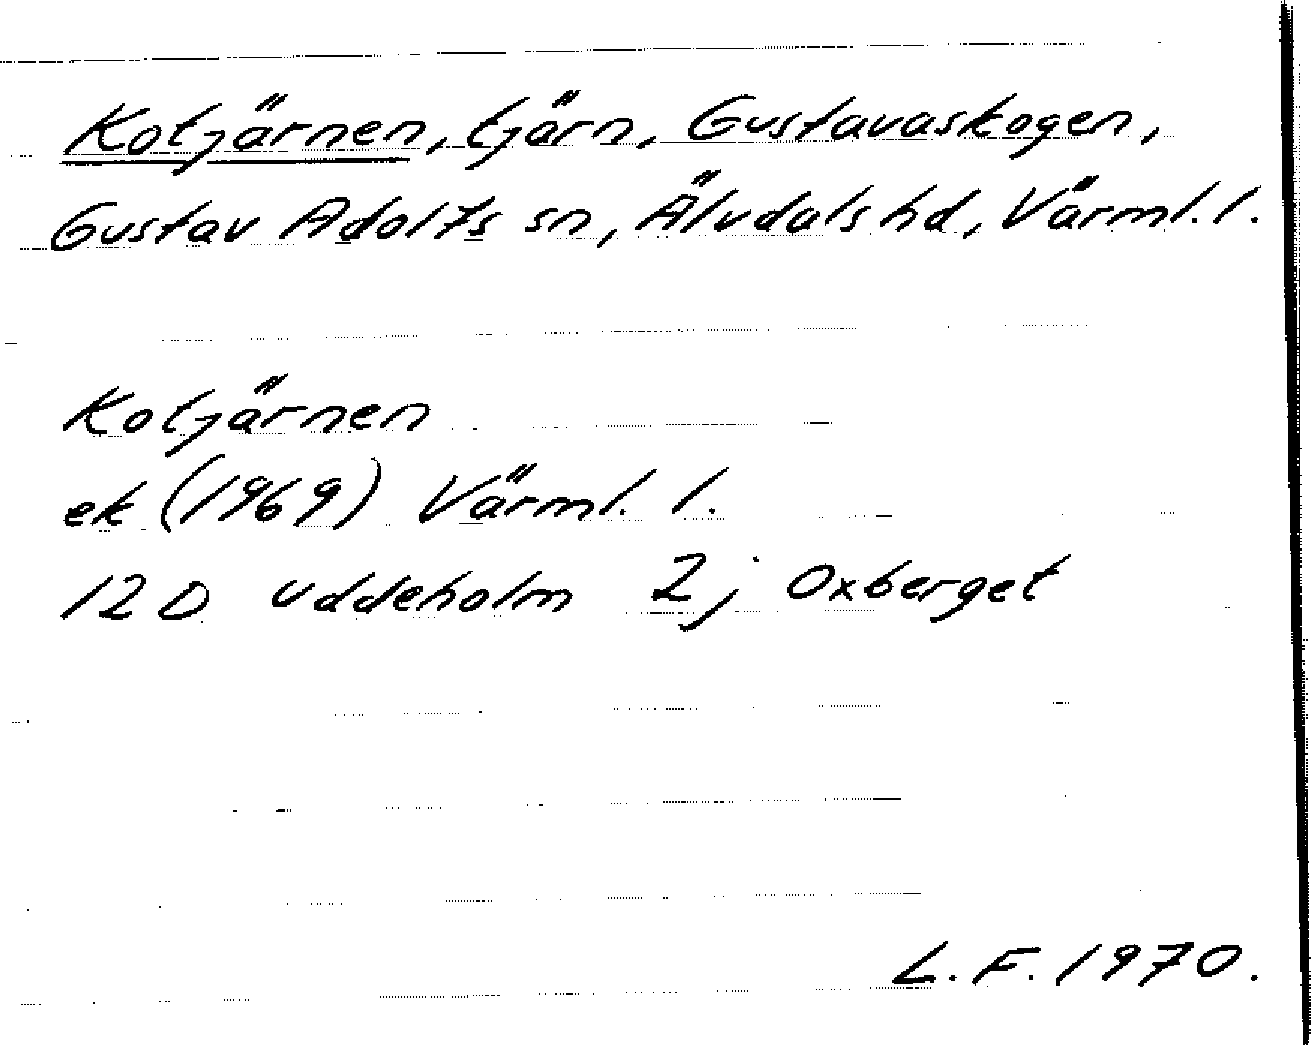 Kotjärnen, tjärn, Gustavaskogen,
Gustav Adolfs sn, Älvdals hd, Värml. l.
Kotjärnen
ek (1969) Värml. l.
12 D Uddeholm 2j Oxberget
L. F. 1970.